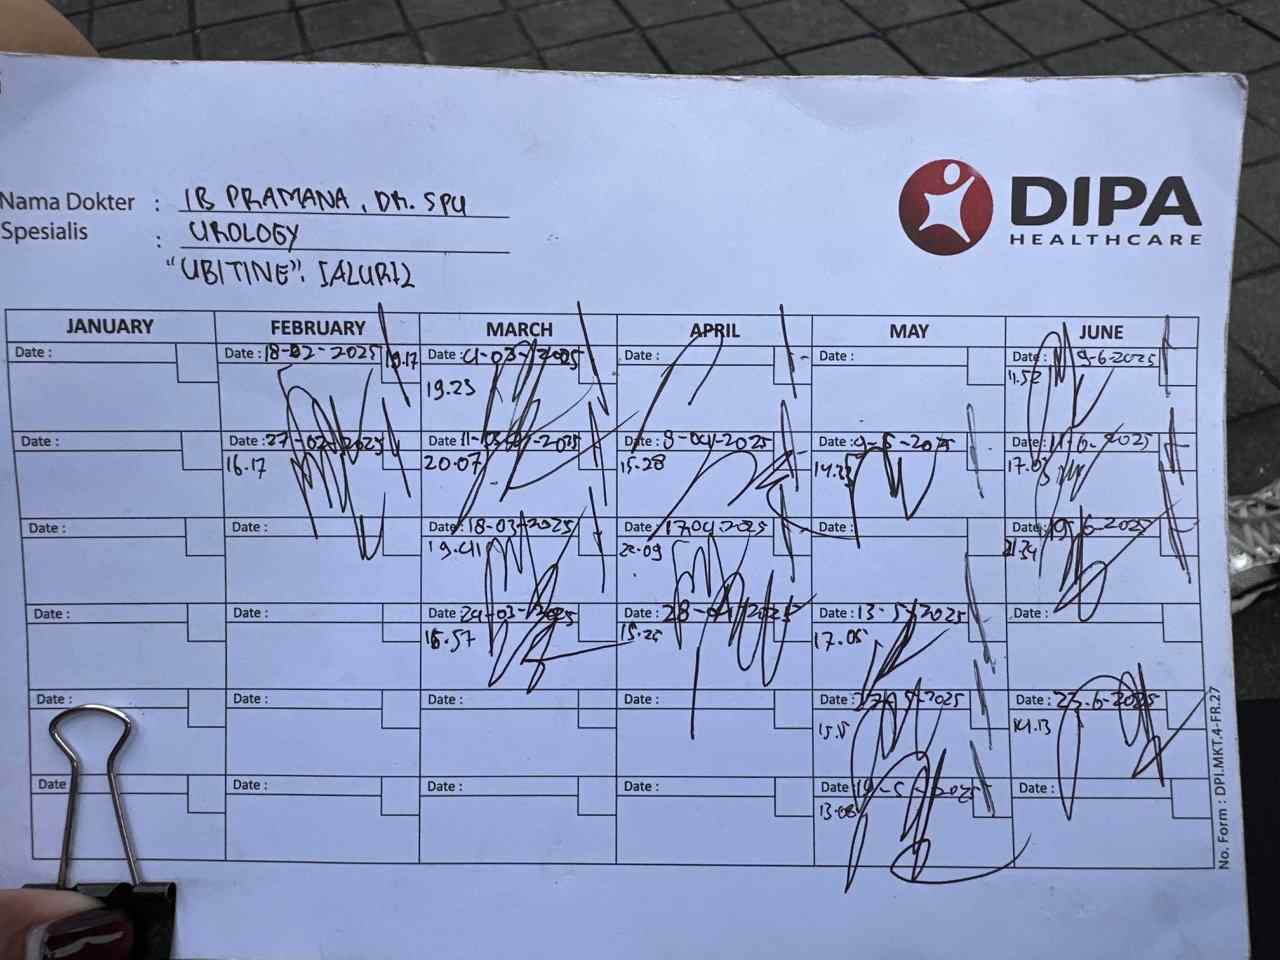 DIPA
HEALTHCARE
Nama Dokter : IB PRAMANA, DR. SPU
Spesialis : UROLOGY
"UBITINE".
JANUARY FEBRUARY MARCH APRIL MAY JUNE
Date : Date : 18-02-2025 19.17 Date : 4-03-2025 Date : Date : Date : 9-6-2025
19.23 11.52
Date : Date : 27-02-2025 Date : 11-03-2025 Date : 8-04-2025 Date : 9-5-2025 Date : 11-6-2025
16.17 20.07 15.28 14.33 17.03
Date : Date : Date : 18-03-2025 Date : 17-04-2025 Date : Date : 19-6-2025
19.41 20.09
Date : Date : Date : 24-03-2025 Date : 28-04-2025 Date : 13-5-2025 Date :
15.25 17.05
Date : Date : Date : Date : Date : Date : 23-6-2025
14.13
Date Date : Date : Date : Date : 19-5-2025 Date :
13.08
No. Form : DPI.MKT.4-FR.27